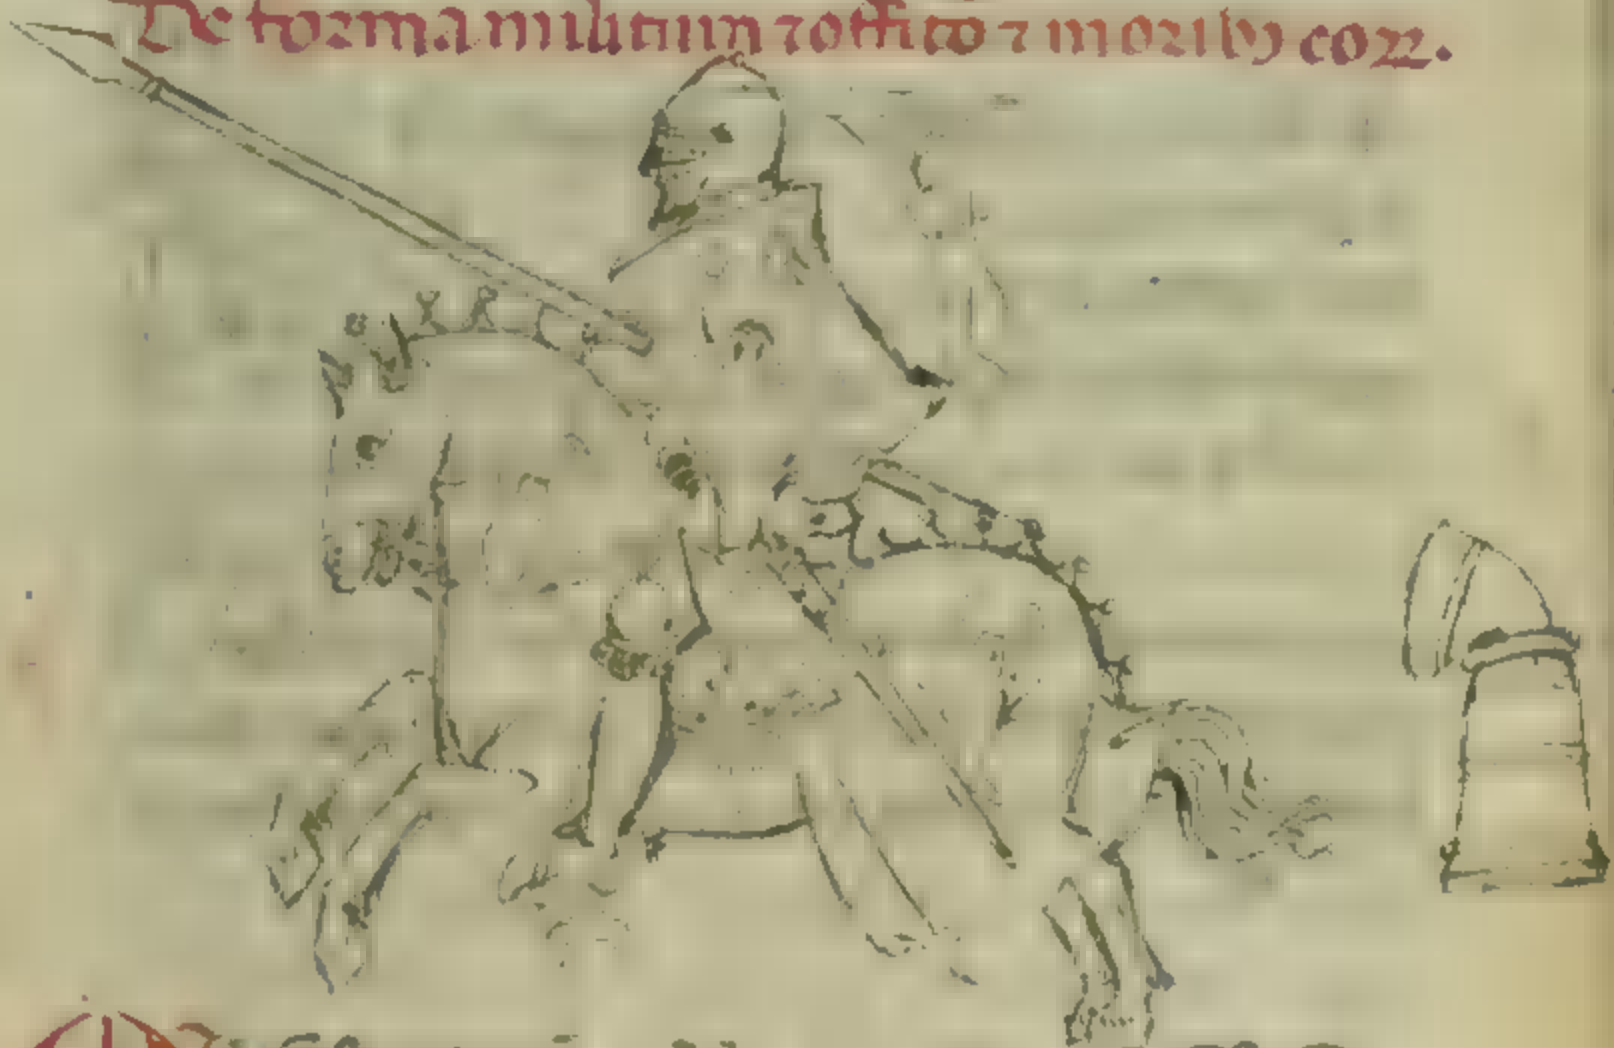 De forma militum ⁊ offitio ⁊ moribꝯ eoꝝ.